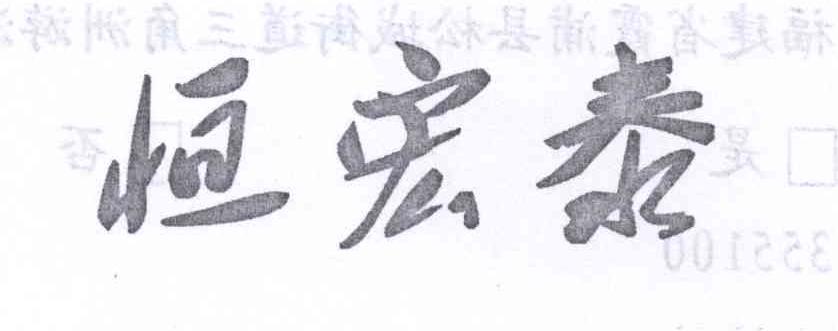 福建省霞浦县松城街道三角洲游
恒宏泰
□是 □否
355100